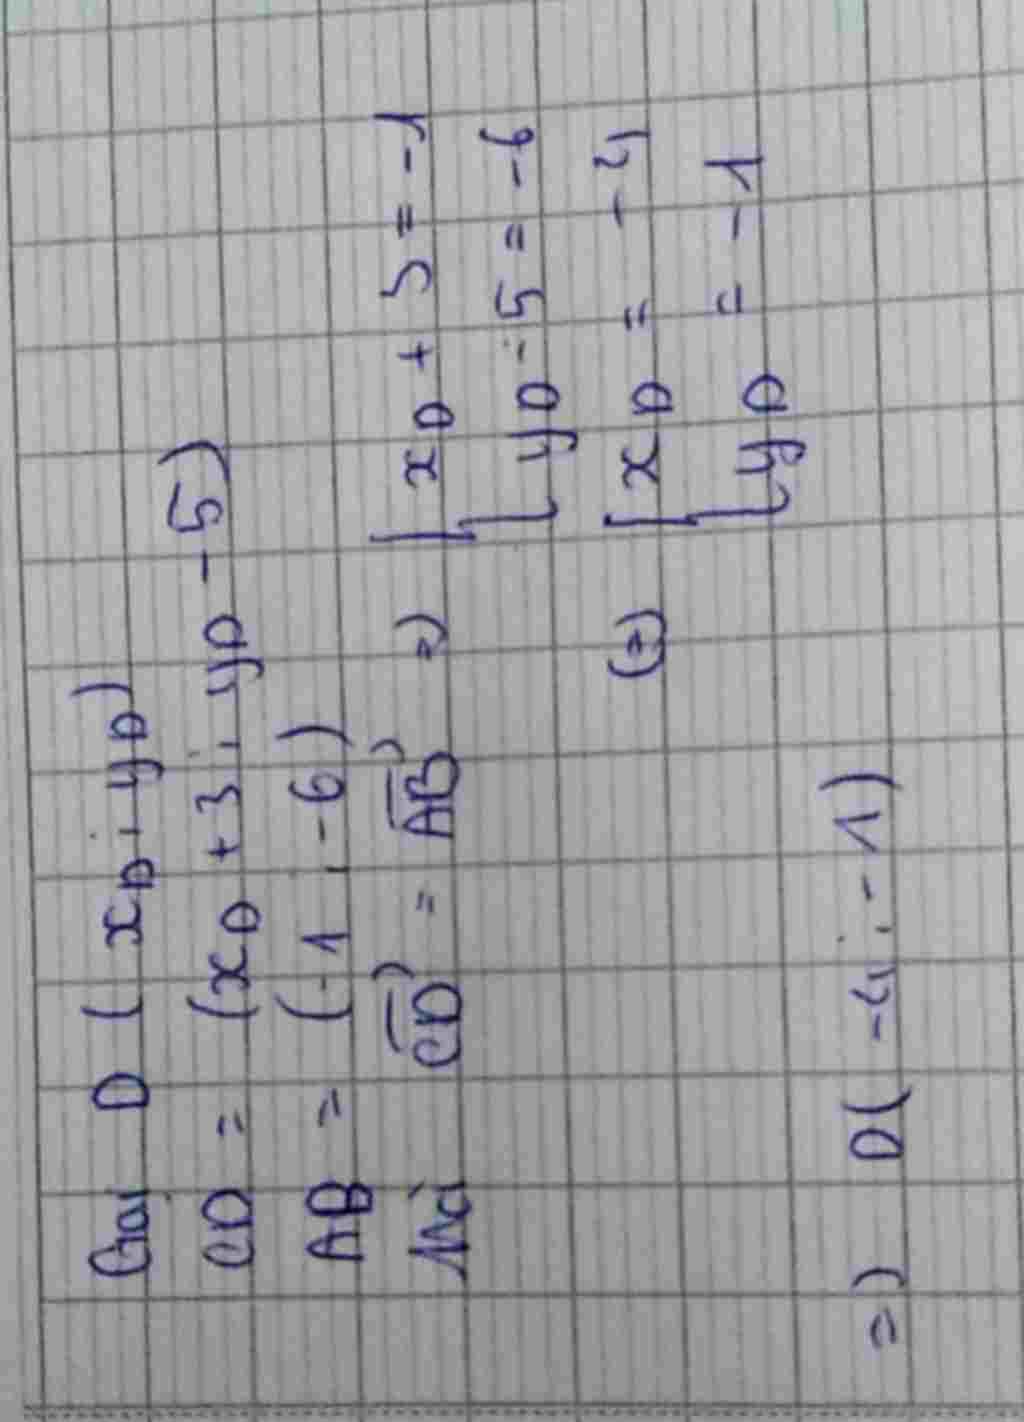 Gọi D ( xD ; yD )
CD = (xD +3 ; yD -5)
AB = (-1 ; -6)
Mà CD = AB => { xD + 3 = -1
yD - 5 = -6
(=) { xD = -4
yD = -1
=) D( -4 ; -1 )